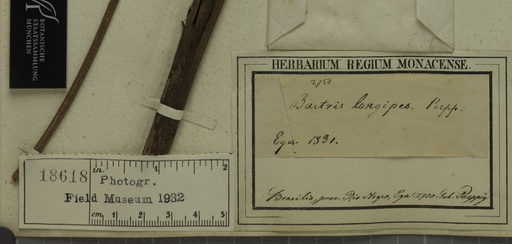 BOTANISCHE
STAATSSAMMLUNG
MÜNCHEN
HERBARIUM REGIUM MONACENSE.
2750
Bactris longipes. Pöpp.
Ega. 1831.
Brasilia, prov. Rio Negro, Ega. 2750. Lgt. Pöppig
18618
in. 1 2
Photogr.
Field Museum 1932
cm. 1 2 3 4 5